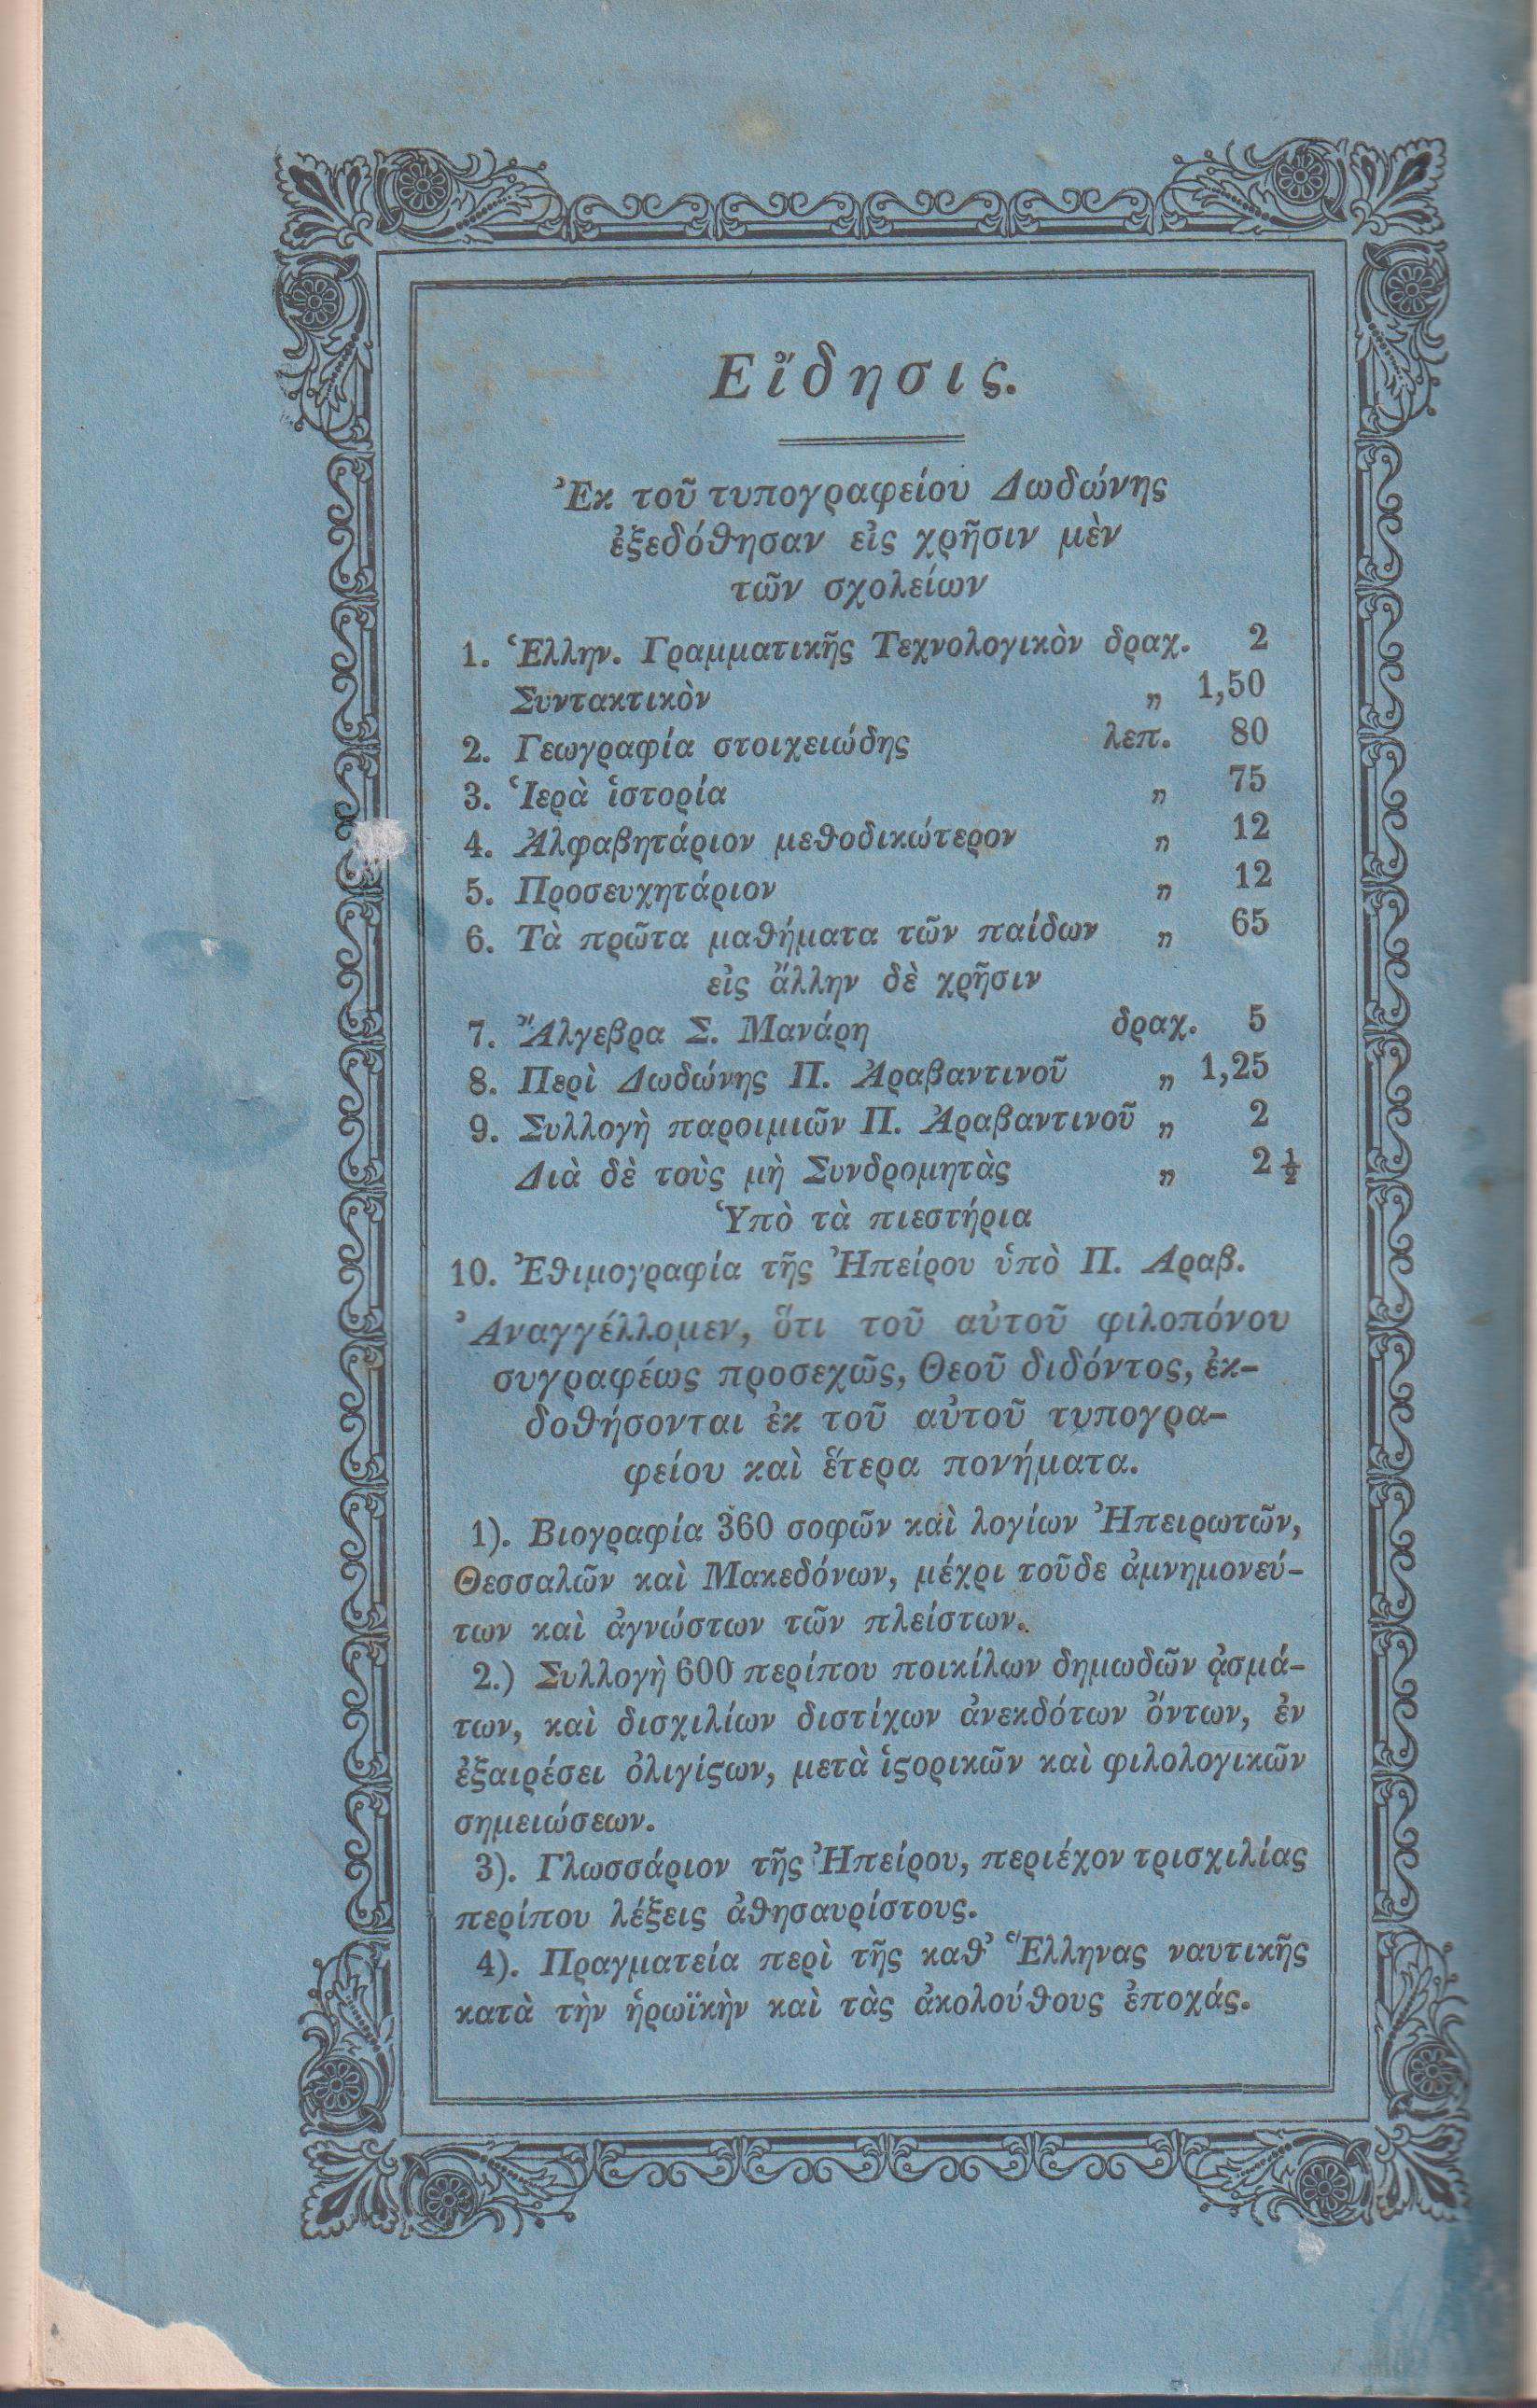 Εἴδησις.
Ἐκ τοῦ τυπογραφείου Δωδώνης
ἐξεδόθησαν εἰς χρῆσιν μὲν
τῶν σχολείων
1. Ἑλλην. Γραμματικῆς Τεχνολογικὸν δραχ. 2
Συντακτικὸν „ 1,50
2. Γεωγραφία στοιχειώδης λεπ. 80
3. Ἱερὰ ἱστορία „ 75
4. Ἀλφαβητάριον μεθοδικώτερον „ 12
5. Προσευχητάριον „ 12
6. Τὰ πρῶτα μαθήματα τῶν παίδων „ 65
εἰς ἄλλην δὲ χρῆσιν
7. Ἄλγεβρα Σ. Μανάρη δραχ. 5
8. Περὶ Δωδώνης Π. Ἀραβαντινοῦ „ 1,25
9. Συλλογὴ παροιμιῶν Π. Ἀραβαντινοῦ „ 2
Διὰ δὲ τοὺς μὴ Συνδρομητὰς „ 2 ½
Ὑπὸ τὰ πιεστήρια
10. Ἐθιμογραφία τῆς Ἠπείρου ὑπὸ Π. Αραβ.
Ἀναγγέλλομεν, ὅτι τοῦ αὐτοῦ φιλοπόνου
συγραφέως προσεχῶς, Θεοῦ διδόντος, ἐκ-
δοθήσονται ἐκ τοῦ αὐτοῦ τυπογρα-
φείου καὶ ἕτερα πονήματα.
1). Βιογραφία 360 σοφῶν καὶ λογίων Ἠπειρωτῶν,
Θεσσαλῶν καὶ Μακεδόνων, μέχρι τοῦδε ἀμνημονεύ-
των καὶ ἀγνώστων τῶν πλείστων.
2.) Συλλογὴ 600 περίπου ποικίλων δημωδῶν ᾀσμά-
των, καὶ δισχιλίων διστίχων ἀνεκδότων ὄντων, ἐν
ἐξαιρέσει ὀλιγίϛων, μετὰ ἱϛορικῶν καὶ φιλολογικῶν
σημειώσεων.
3). Γλωσσάριον τῆς Ἠπείρου, περιέχον τρισχιλίας
περίπου λέξεις ἀθησαυρίστους.
4). Πραγματεία περὶ τῆς καθ' Ἕλληνας ναυτικῆς
κατὰ τὴν ἡρωϊκὴν καὶ τὰς ἀκολούθους ἐποχάς.